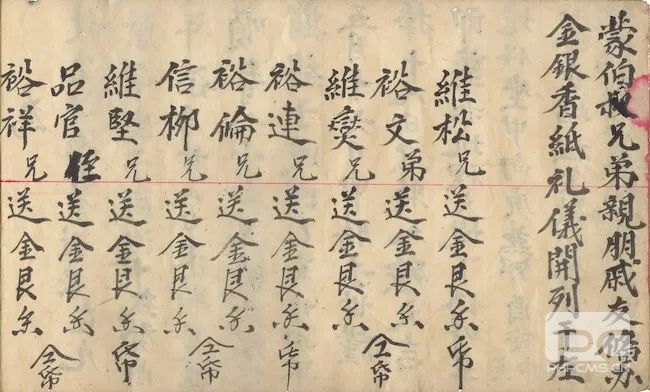 蒙伯叔兄弟親朋戚友俻办
金銀香紙礼儀開列于左
維松兄送金艮香帋
裕文弟送金艮香
仝帋
維爕兄送金艮香
裕連兄送金艮香帋
裕倫兄送金艮香
仝帋
信柳兄送金艮香
維堅兄送金艮香帋
品官侄送金艮香
仝帋
裕祥兄送金艮香